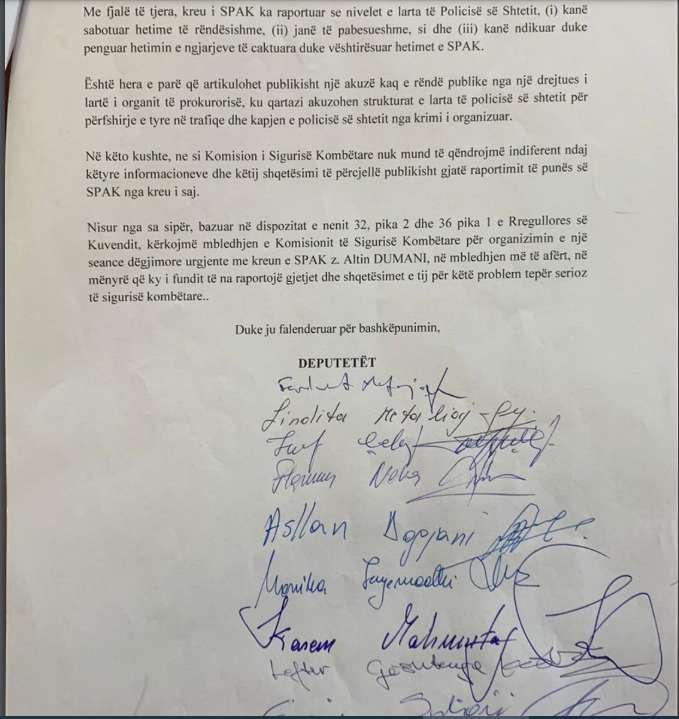 Me fjalë të tjera, kreu i SPAK ka raportuar se nivelet e larta të Policisë së Shtetit, (i) kanë
sabotuar hetime të rëndësishme, (ii) janë të pabesueshme, si dhe (iii) kanë ndikuar duke
penguar hetimin e ngjarjeve të caktuara duke vështirësuar hetimet e SPAK.
Është hera e parë që artikulohet publikisht një akuzë kaq e rëndë publike nga një drejtues i
lartë i organit të prokurorisë, ku qartazi akuzohen strukturat e larta të policisë së shtetit për
përfshirje e tyre në trafiqe dhe kapjen e policisë së shtetit nga krimi i organizuar.
Në këto kushte, ne si Komision i Sigurisë Kombëtare nuk mund të qëndrojmë indiferent ndaj
këtyre informacioneve dhe këtij shqetësimi të përcjellë publikisht gjatë raportimit të punës së
SPAK nga kreu i saj.
Nisur nga sa sipër, bazuar në dispozitat e nenit 32, pika 2 dhe 36 pika 1 e Rregullores së
Kuvendit, kërkojmë mbledhjen e Komisionit të Sigurisë Kombëtare për organizimin e një
seance dëgjimore urgjente me kreun e SPAK z. Altin DUMANI, në mbledhjen më të afërt, në
mënyrë që ky i fundit të na raportojë gjetjet dhe shqetësimet e tij për këtë problem tepër serioz
të sigurisë kombëtare..
Duke ju falenderuar për bashkëpunimin,
DEPUTETËT
Lindita
Noka
Asllan Dogjani
Monika
Kasem
Lefter